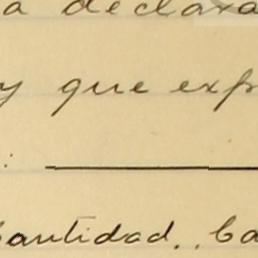 a declara
y que exp
:
Cantidad. Ca